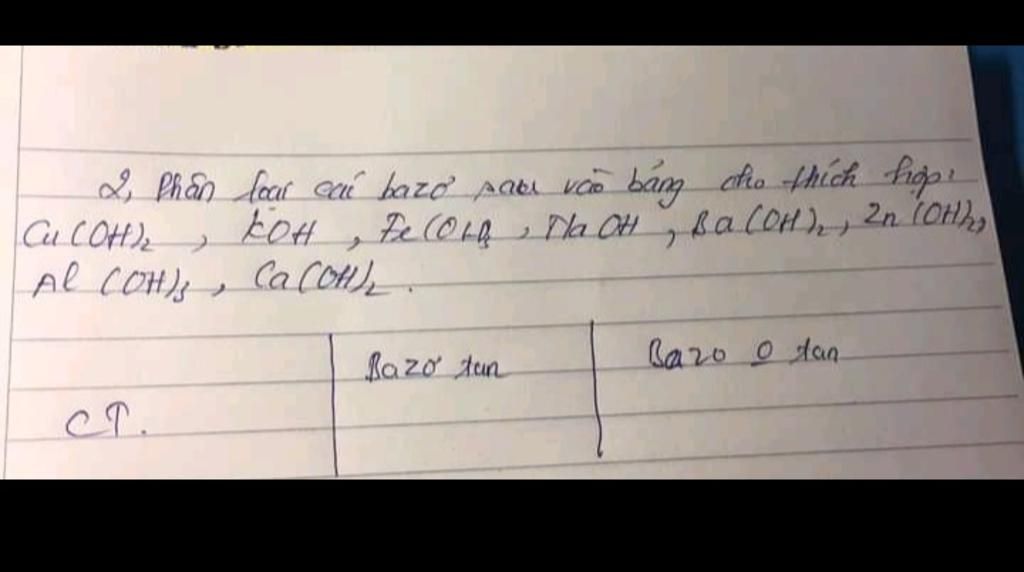 2, Phân loại các bazơ sau vào bảng cho thích hợp:
Cu(OH)₂, KOH, Fe(OH), NaOH, Ba(OH)₂, Zn(OH)₂,
Al(OH)₃, Ca(OH)₂.
Bazơ tan Bazo 0 tan
CT.